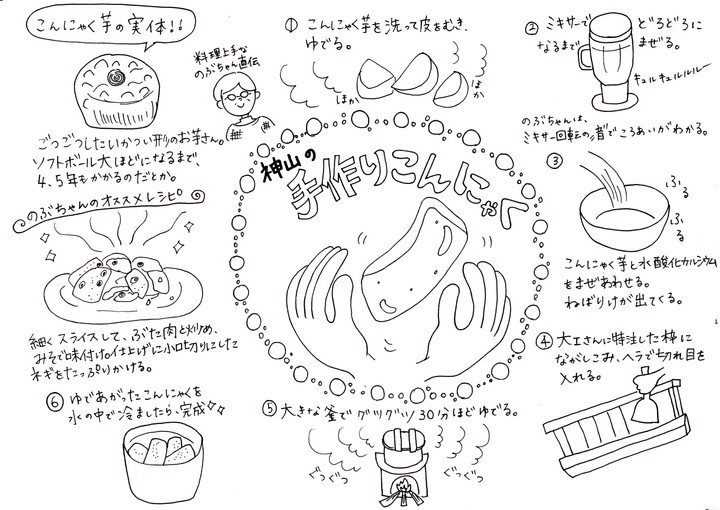 こんにゃく芋の実体!!
料理上手な
のぶちゃん直伝
ごつごつしたいかつい形のお芋さん。
ソフトボール大ほどになるまで、
4、5年もかかるのだとか。
のぶちゃんのオススメレシピ
細くスライスして、ぶた肉と炒め、
みそで味付け。仕上げに小口切りにした
ネギをたっぷりかける。
神山の
手作りこんにゃく
① こんにゃく芋を洗って皮をむき、
ゆでる。
ほか
ほか
② ミキサーで どろどろに
なるまで まぜる。
キュルキュルルルー
のぶちゃんは、
ミキサー回転の音でころあいがわかる。
③
ふる
ふる
こんにゃく芋と水酸化カルシウム
をまぜあわせる。
ねばりけが出てくる。
④ 大工さんに特注した枠に
ながしこみ、ヘラで切れ目を
入れる。
⑤ 大きな釜でグツグツ30分ほどゆでる。
ぐつぐつ
ぐつぐつ
⑥ ゆであがったこんにゃくを
水の中で冷ましたら、完成